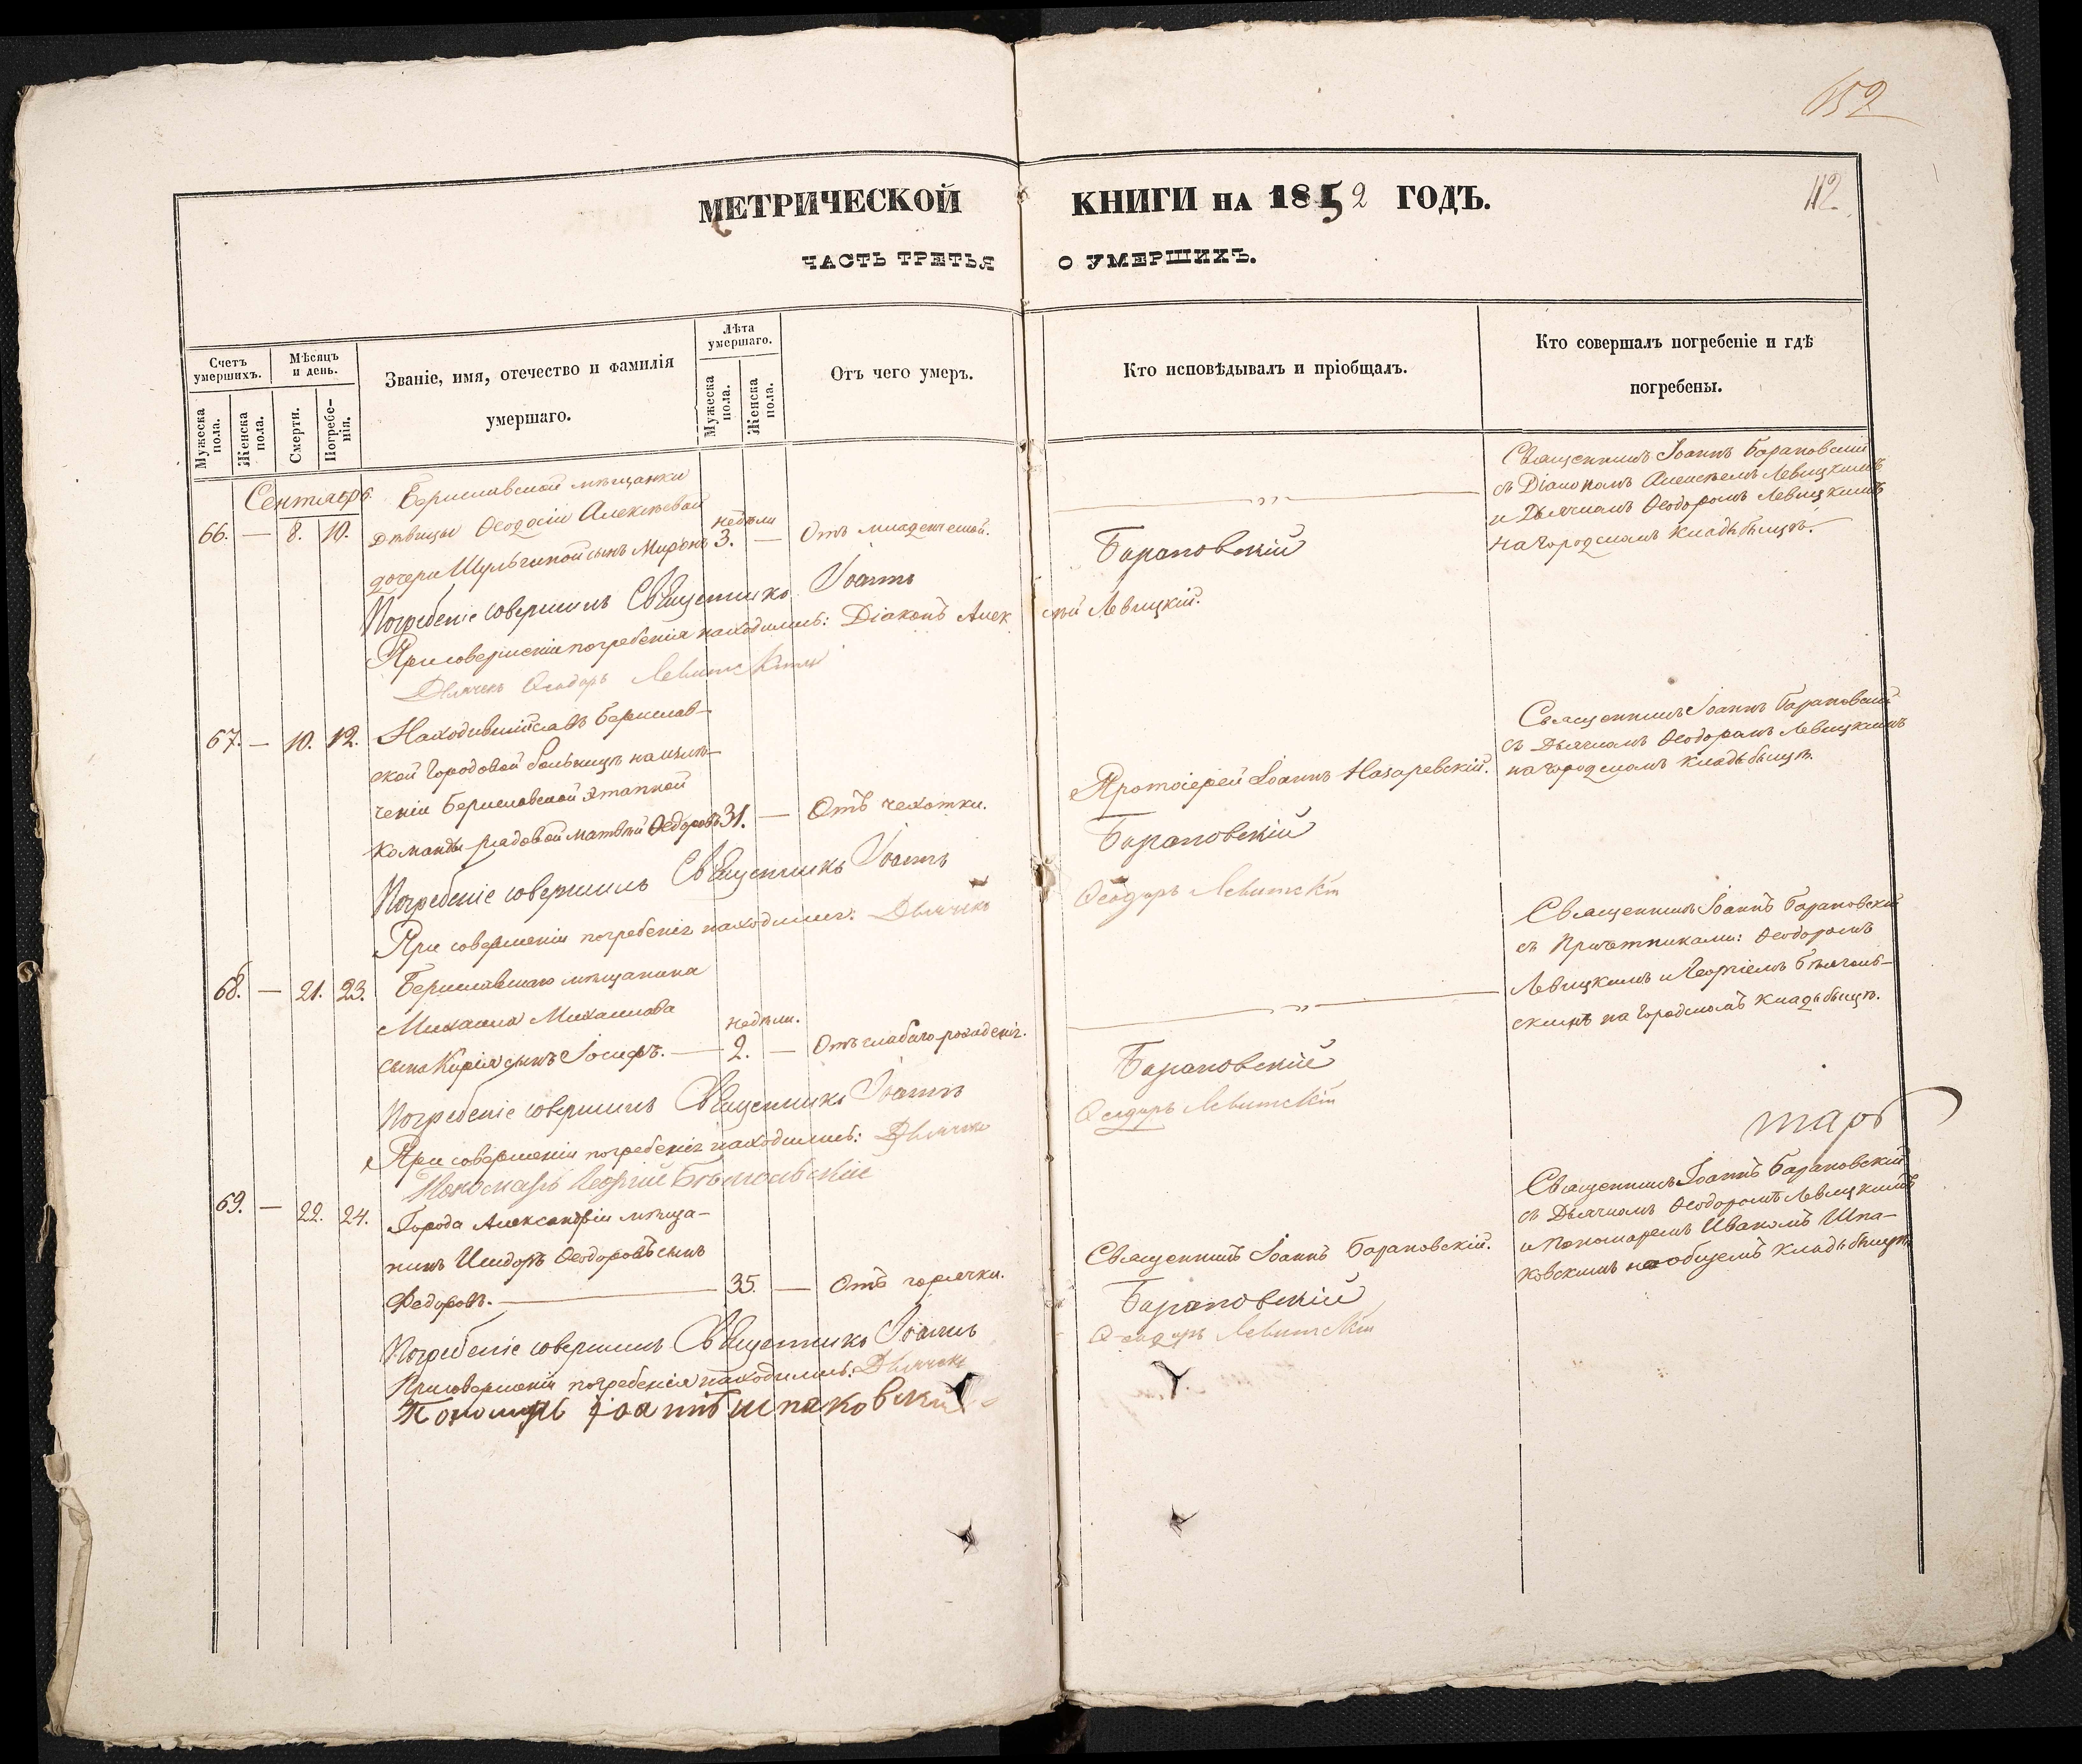 652
112
МЕТРИЧЕСКОЙ КНИГИ НА 1852 ГОДЪ.
ЧАСТЬ ТРЕТЬЯ О УМЕРШИХЪ.
Счетъ умершихъ.
Мужеска пола.
Женска пола.
Мѣсяцъ и день.
Смерти.
Погребенія.
Званіе, имя, отечество и фамилія
умершаго.
Лѣта умершаго.
Мужеска пола.
Женска пола.
Отъ чего умеръ.
Кто исповѣдывалъ и пріобщалъ.
Кто совершалъ погребеніе и гдѣ
погребены.
Сентября
Бериславской мѣщанки
66. — 8. 10. дѣвицы Ѳеодосіи Алексѣевой недѣли
дочери Шульгиной сынъ Миронъ 3. — Отъ младенческой.
— „ —
Священникъ Іоаннъ Барановскій
съ Діакономъ Алексѣемъ Левицкимъ
и Дьячкомъ Ѳеодоромъ Левицкимъ
на городскомъ кладьбищѣ.
Погребеніе совершилъ Священникъ Іоаннъ Барановскій
При совершеніи погребенія находились: Діаконъ Алексѣй Левицкій.
Дьячекъ Ѳеодоръ Левитскій
67. — 10. 12. Находившійся въ Берислав-
ской городовой больницѣ на излѣ-
ченіи Бериславской этапной
команды рядовой Матвѣй Ѳедоровъ 31. — Отъ чехотки.
Протоіерей Іоаннъ Назаревскій.
Священникъ Іоаннъ Барановскій
съ Дьячкомъ Ѳеодоромъ Левицкимъ
на городскомъ кладьбищѣ.
Погребеніе совершилъ Священникъ Іоаннъ Барановскій
При совершеніи погребенія находились: Дьячекъ Ѳеодоръ Левитскій
68. — 21. 23. Бериславскаго мѣщанина
Михаила Михаилова недѣли.
сына сынъ Іосифъ. — 2. — Отъ слабаго рожденія.
— „ —
Священникъ Іоаннъ Барановскій
съ Причетниками: Ѳеодоромъ
Левицкимъ и Георгіемъ
на городскомъ кладьбищѣ.
Погребеніе совершилъ Священникъ Іоаннъ Барановскій
При совершеніи погребенія находились: Дьячекъ Ѳеодоръ Левитскій
Пономарь Георгій
тарь
69. — 22. 24. Города Александріи мѣща-
нинъ Исидоръ Ѳеодоровъ сынъ
Федоровъ. — 35. — Отъ горячки.
Священникъ Іоаннъ Барановскій.
Священникъ Іоаннъ Барановскій
съ Дьячкомъ Ѳеодоромъ Левицкимъ
и Пономаремъ Иваномъ Шпа-
ковскимъ на общемъ кладьбищѣ
Погребеніе совершилъ Священникъ Іоаннъ Барановскій
При совершеніи погребенія находились: Дьячекъ Ѳеодоръ Левитскій
Пономарь Іоаннъ Шпаковскій